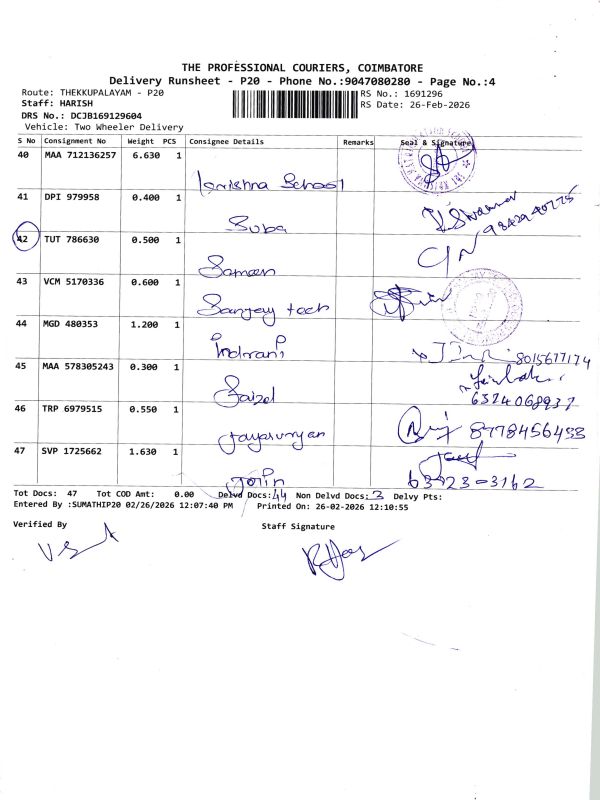 THE PROFESSIONAL COURIERS, COIMBATORE
Delivery Runsheet - P20 - Phone No.:9047080280 - Page No.:4
Route: THEKKUPALAYAM - P20
RS No.: 1691296
Staff: HARISH
RS Date: 26-Feb-2026
DRS No.: DCJB169129604
Vehicle: Two Wheeler Delivery
S No Consignment No Weight PCS Consignee Details Remarks Seal & Signature
40 MAA 712136257 6.630 1
Krishna School
41 DPI 979958 0.400 1
Suba
9842940775
42 TUT 786630 0.500 1
Saman
43 VCM 5170336 0.600 1
Sanjay tech
44 MGD 480353 1.200 1
Indrani
8015677174
45 MAA 578305243 0.300 1
Faizel
6374068937
46 TRP 6979515 0.550 1
Jayasuryan
8778456433
47 SVP 1725662 1.630 1
Jolin
63823-3162
Tot Docs: 47 Tot COD Amt: 0.00 Delvd Docs: 44 Non Delvd Docs: 3 Delvy Pts:
Entered By :SUMATHIP20 02/26/2026 12:07:40 PM Printed On: 26-02-2026 12:10:55
Verified By
Staff Signature